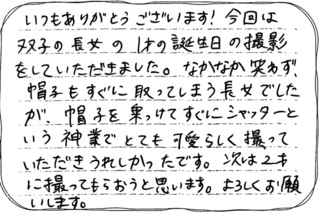 いつもありがとうございます！今回は
双子の長女の1才の誕生日の撮影
をしていただきました。なかなか笑わず、
帽子もすぐに取ってしまう長女でした
が、帽子を乗っけてすぐにシャッターと
いう神業でとても可愛らしく撮って
いただきうれしかったです。次は2才
に撮ってもらおうと思います。よろしくお願
いします。